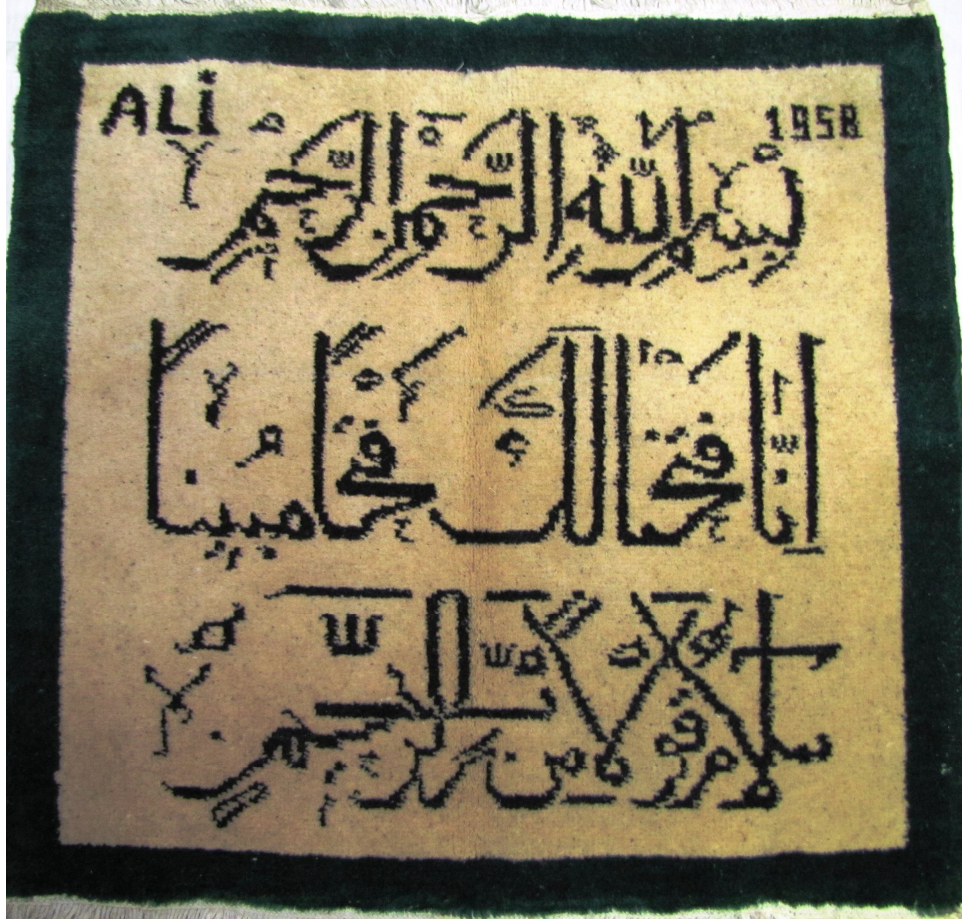 ALİ 1958
بِسْمِ اللّٰهِ الرَّحْمٰنِ الرَّحِيمِ
اِنَّا فَتَحْنَا لَكَ فَتْحًا مُبِينًا
سَلَامٌ قَوْلًا مِنْ رَبٍّ رَحِيمٍ